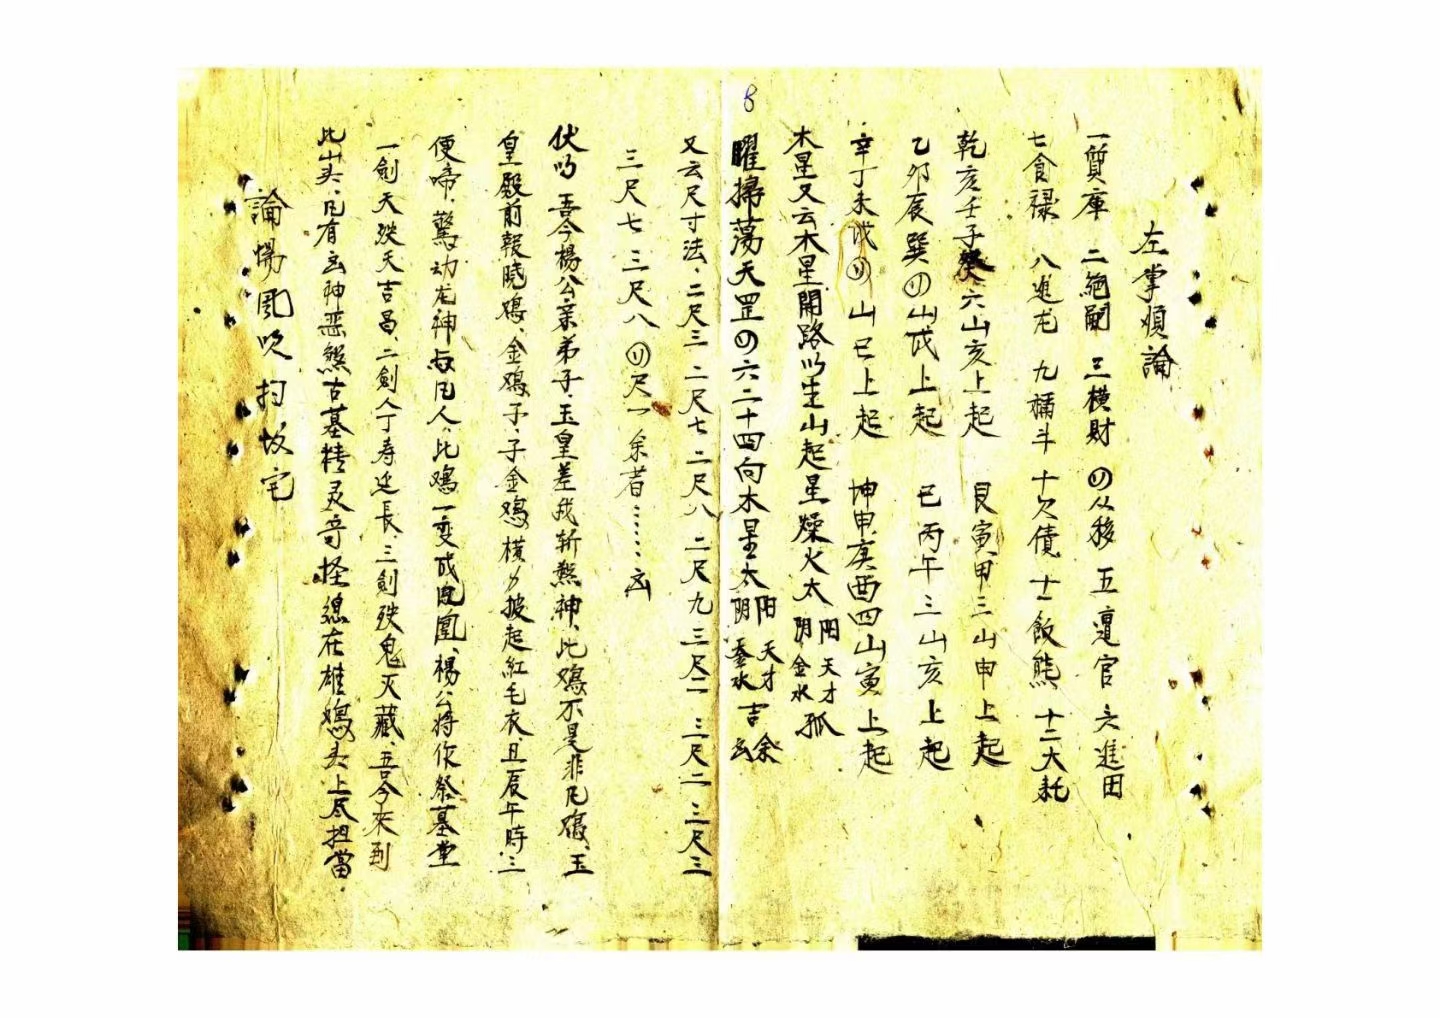 8
左掌順論
一質庫 二絕嗣 三横財 四从移 五遑官 六進田
七食禄 八進龙 九橘斗 十欠債 十一飯熊 十二大耗
乾亥壬子癸六山亥上起 艮寅甲三山申上起
乙夘辰巽四山戌上起 巳丙午三山亥上起
辛丁未戌四山巳上起 坤申庚酉四山寅上起
木星又云木星開路以生山起星燥火太阴阳金水天才孤
曜掃蕩天罡四六二十四向木星太阴阳金水天才吉余凶
又云尺寸法、二尺三 二尺七 二尺八 二尺九 三尺一 三尺二 三尺三
三尺七 三尺八 四尺一 余者……凶
伏以 吾今楊公亲弟子、玉皇差我斩煞神、比鳮不是非凡鳮、玉
皇殿前報曉鳮、金鳮子、子金鳮横身披起紅毛衣、丑辰午時、三
便啼、驚动龙神与凡人、比鳮一变成凤凰、楊公将你祭墓堂
一劍天殃天吉昌、二劍人丁寿延長、三劍殃鬼灭藏、吾今來到
比山头、凡有凶神恶煞古墓精灵奇怪總在雄鳮头上尽担當.
論場風吹扫坟宅